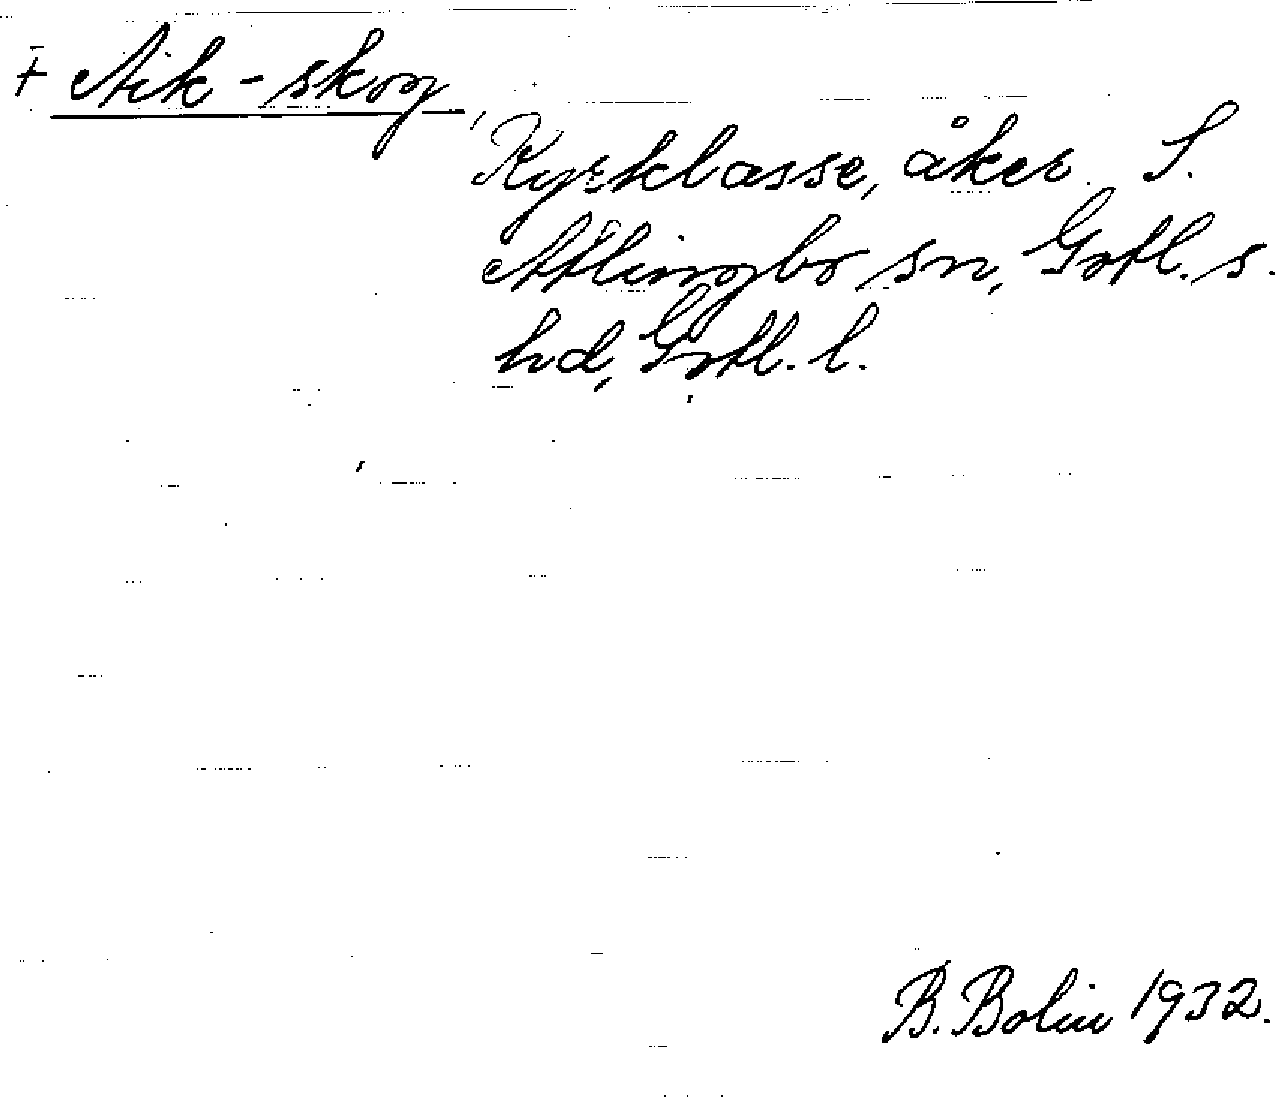 + Aik-skog,
Kyrklasse, åker. S.
Atlingbo sn, Gotl. s.
hd, Gotl. l.
B. Bolin 1932.